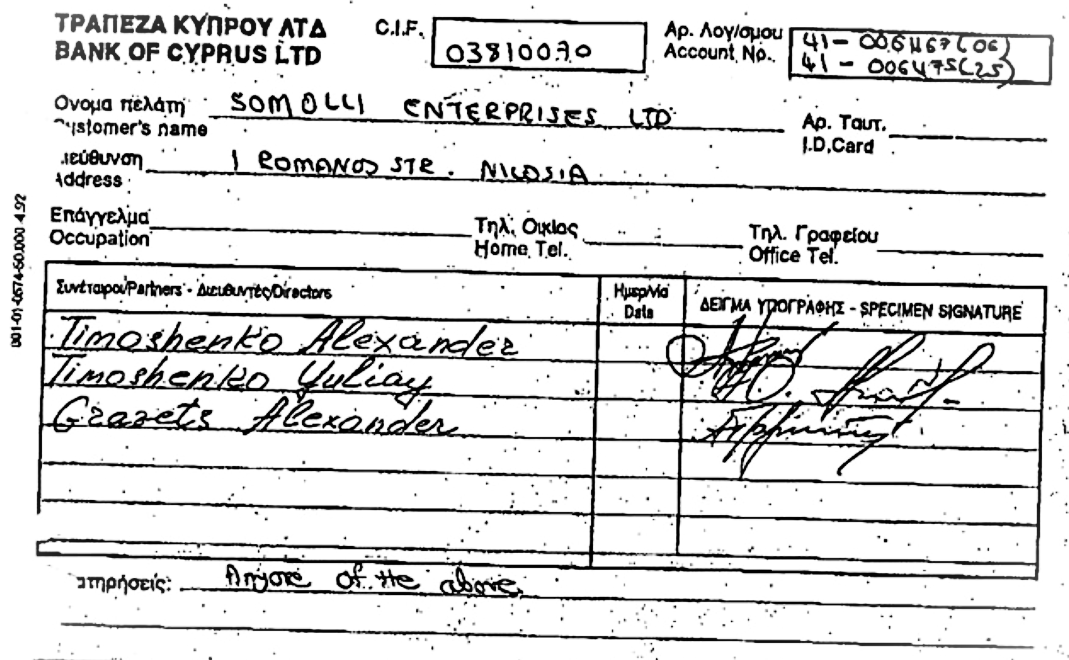 ΤΡΑΠΕΖΑ ΚΥΠΡΟΥ ΛΤΔ
BANK OF CYPRUS LTD
C.I.F. 03810070
Αρ. Λογ/σμου
Account No.
41 - 006467(06)
41 - 006475(25)
Ονομα πελάτη
Customer's name
SOMOLLI ENTERPRISES LTD
Αρ. Ταυτ.
I.D. Card
ιεύθυνση
Address
1 ROMANOS STR. NICOSIA
Επάγγελμα
Occupation
Τηλ. Οικίας
Home Tel.
Τηλ. Γραφείου
Office Tel.
001-01-0574-50.000-4.92
Συνέταιροι/Partners - Διευθυντές/Directors
Ημερ/νία
Date
ΔΕΙΓΜΑ ΥΠΟΓΡΑΦΗΣ - SPECIMEN SIGNATURE
Timoshenko Alexander
Timoshenko Yuliay
Gravets Alexander
τηρήσεις: Anyone of the above